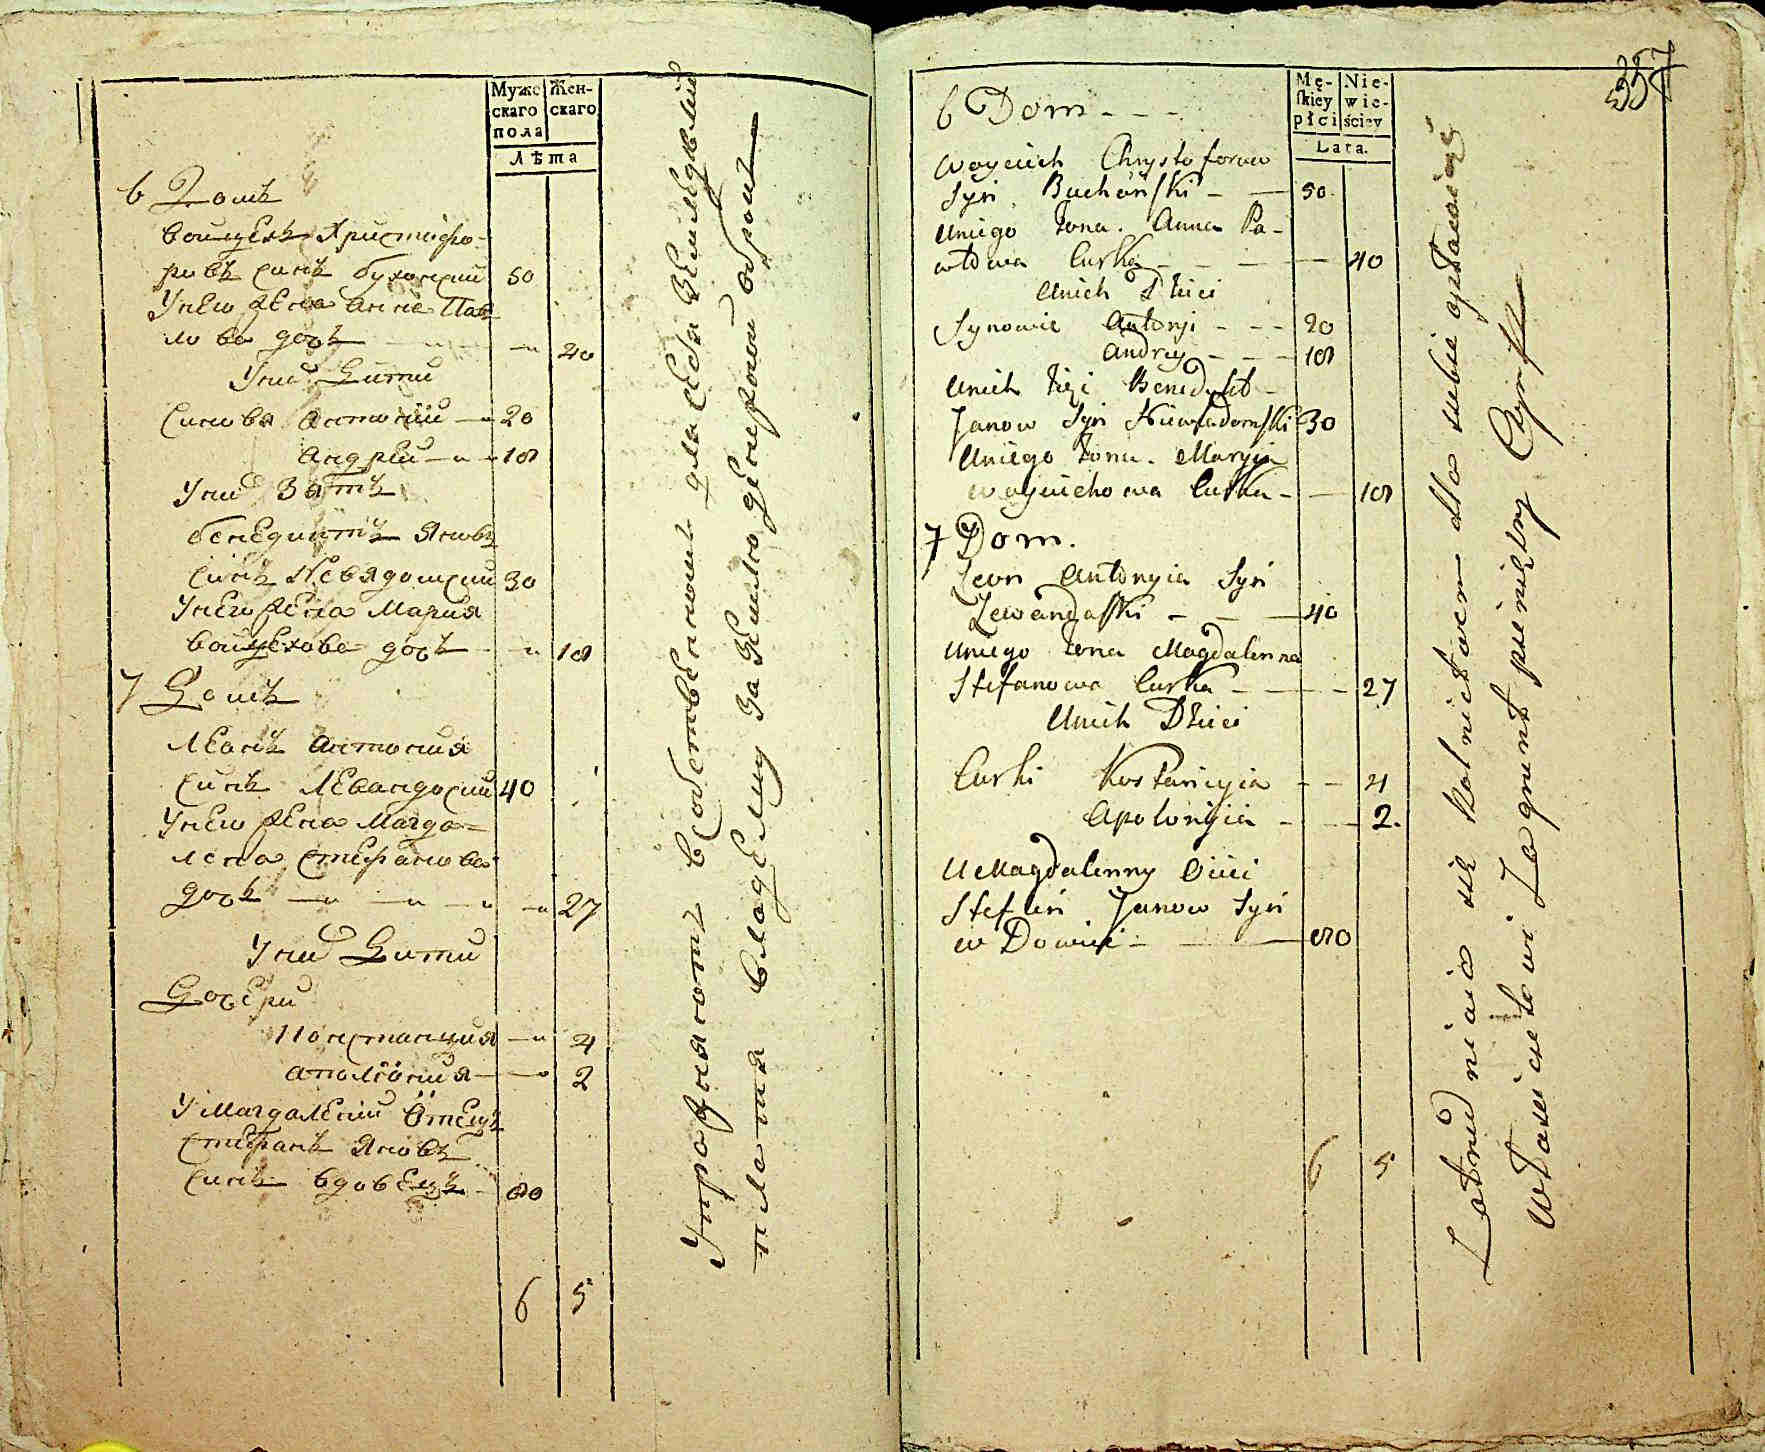 Муже
скаго
пола
Жен-
скаго
Лѣта
6 Домъ
Войцехъ Христофо-
ровъ синъ Бухонский 50
Унего жена Анна Пав
лова дочь 40
Уних Дити
Синове Антоний 20
Андрей 18
Уних Зять
Бенедиктъ Яновъ
синъ Невядомский 30
Унего жена Мария
Войцехова дочь 18
7 Домъ
Леонъ Антония
синъ Левандоский 40
Унего жена Магда-
лена Стефанова
дочь 27
Уних Дити
Дочери
Констанция 4
Аполония 2
У Магдалени Отецъ
Стефанъ Яновъ
синъ вдовецъ 80
6 5
Упражняютъ всобственном для себя земледелии
платя владелцу за землю денежной оброкъ
357
6 Dom
Mę-
skiey
płci
Nie-
wie-
ściey
Lata.
Woyciech Chrystoforow
Syn Buchoński 50
Uniego Żona Anna Pa-
włowa Curka 40
Unich Dzieci
Synowie Antonji 20
Andrzey 18
Unich Zięć Benedykt
Janow Syn Niewiadomski 30
Uniego Żona Maryia
Woyciechowa Curka 18
7 Dom.
Leon Antonyia Syn
Lewandoski 40
Uniego Żona Magdalenna
Stefanowa Curka 27
Unich Dzieci
Curki Kostancyia 4
Apolonyia 2.
U Magdalenny Ociec
Stefan Janow Syn
w Dowiec 80
6 5
Zatrudniaią się Rolnictwem dla siebie opłacaiąc
Właścicielowi Za grunt pieniężny Czynsz